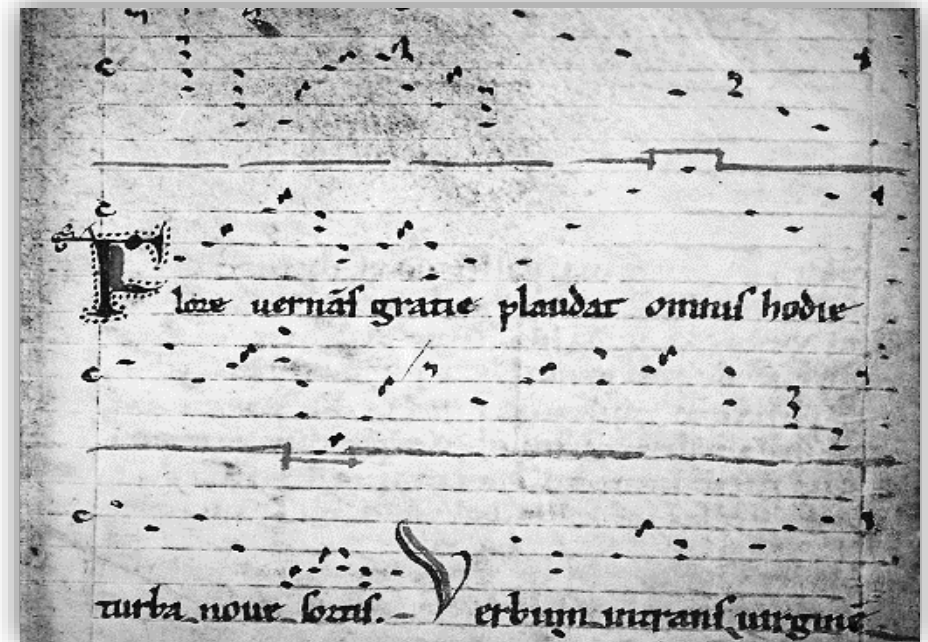 Flore uernãs gratie plaudat omnis hodie
turba noue sortis. Verbum intrans uirginẽ